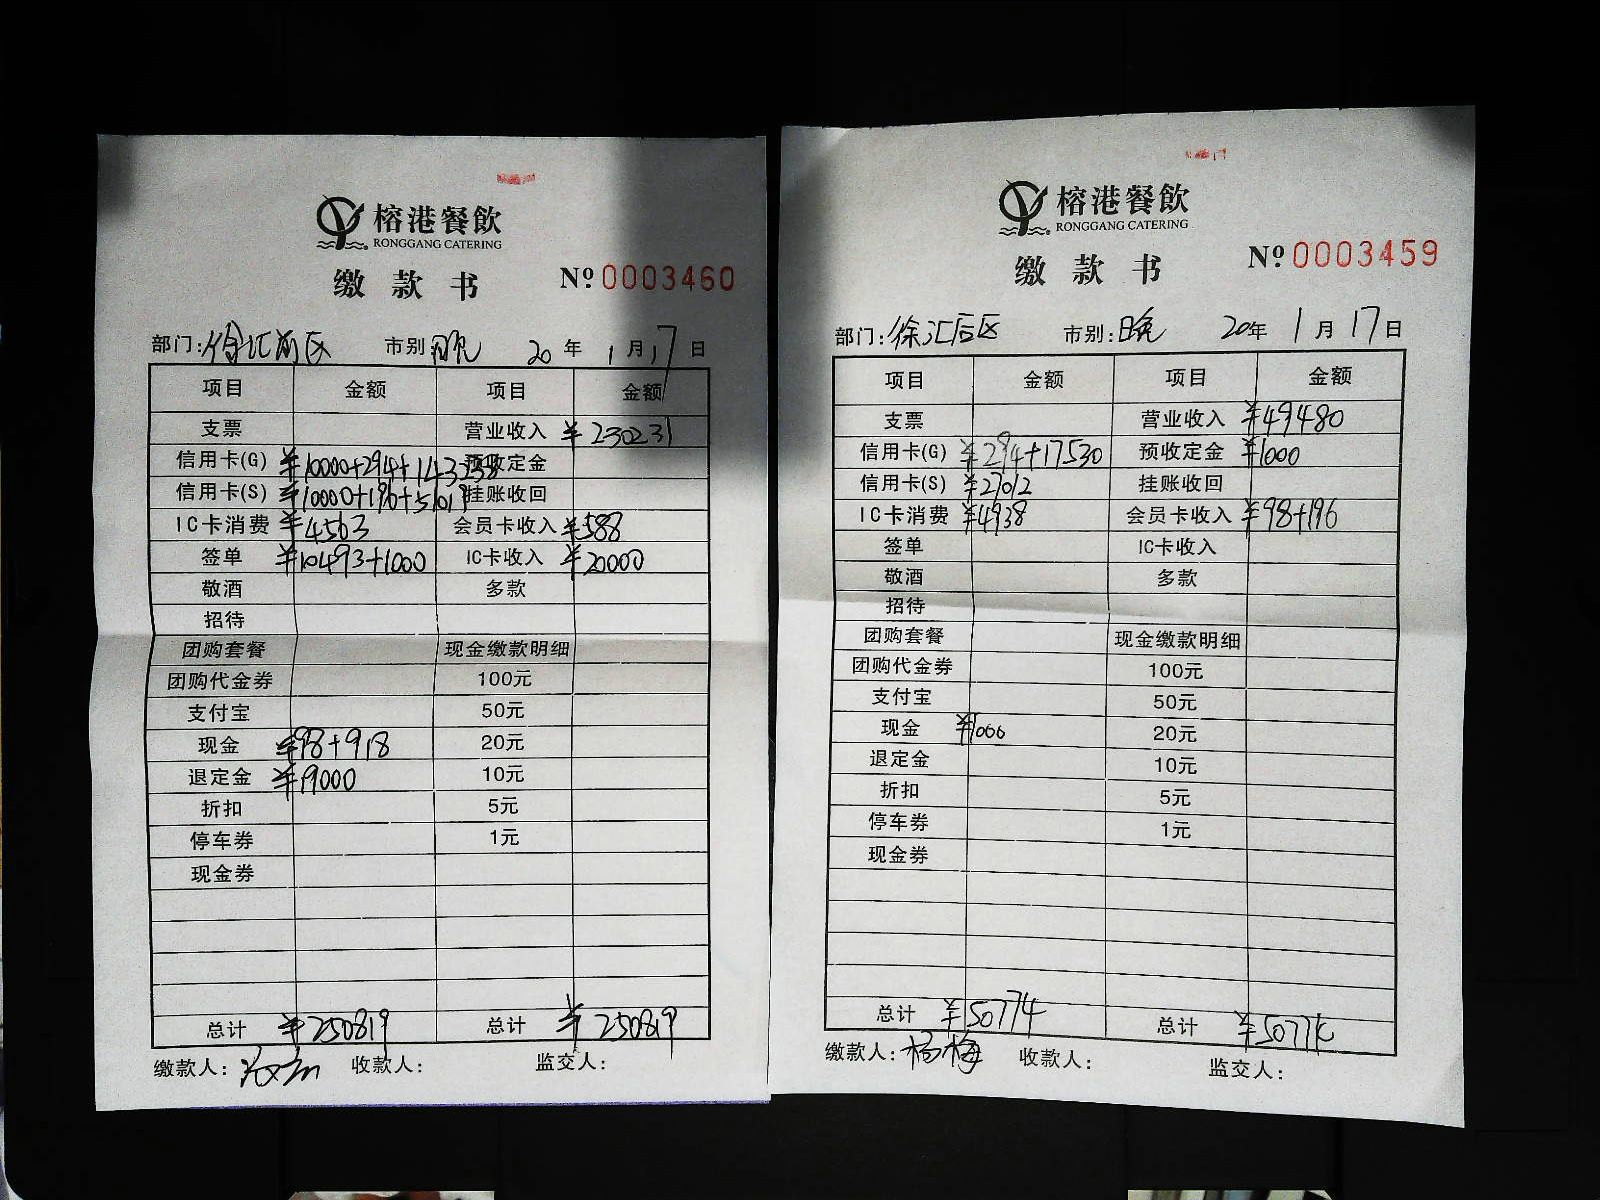 榕港餐飲
RONGGANG CATERING
缴款书 Nº 0003460
部门:徐汇前区 市别 晚 20年1月17日
项目 金额 项目 金额
支票 营业收入 ¥230231
信用卡(G) ¥10000+294+143238 预收定金
信用卡(S) ¥10000+196+51019 挂账收回
IC卡消费 ¥4563 会员卡收入 ¥588
签单 ¥10493+1000 IC卡收入 ¥20000
敬酒 多款
招待
团购套餐 现金缴款明细
团购代金券 100元
支付宝 50元
现金 ¥98+918 20元
退定金 ¥19000 10元
折扣 5元
停车券 1元
现金券
总计 ¥250819 总计 ¥250819
缴款人: 收款人: 监交人:
榕港餐飲
RONGGANG CATERING
缴款书 Nº 0003459
部门:徐汇后区 市别:晚 20年1月17日
项目 金额 项目 金额
支票 营业收入 ¥49480
信用卡(G) ¥294+17530 预收定金 ¥1000
信用卡(S) ¥27012 挂账收回
IC卡消费 ¥4938 会员卡收入 ¥98+196
签单 IC卡收入
敬酒 多款
招待
团购套餐 现金缴款明细
团购代金券 100元
支付宝 50元
现金 ¥1000 20元
退定金 10元
折扣 5元
停车券 1元
现金券
总计 ¥50774 总计 ¥50774
缴款人:杨梅 收款人: 监交人: